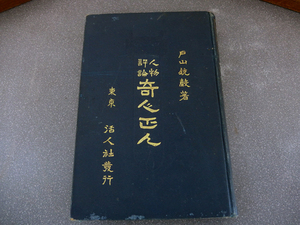 戸山銃声著
人物
評論
奇人正人
東京
活人社発行